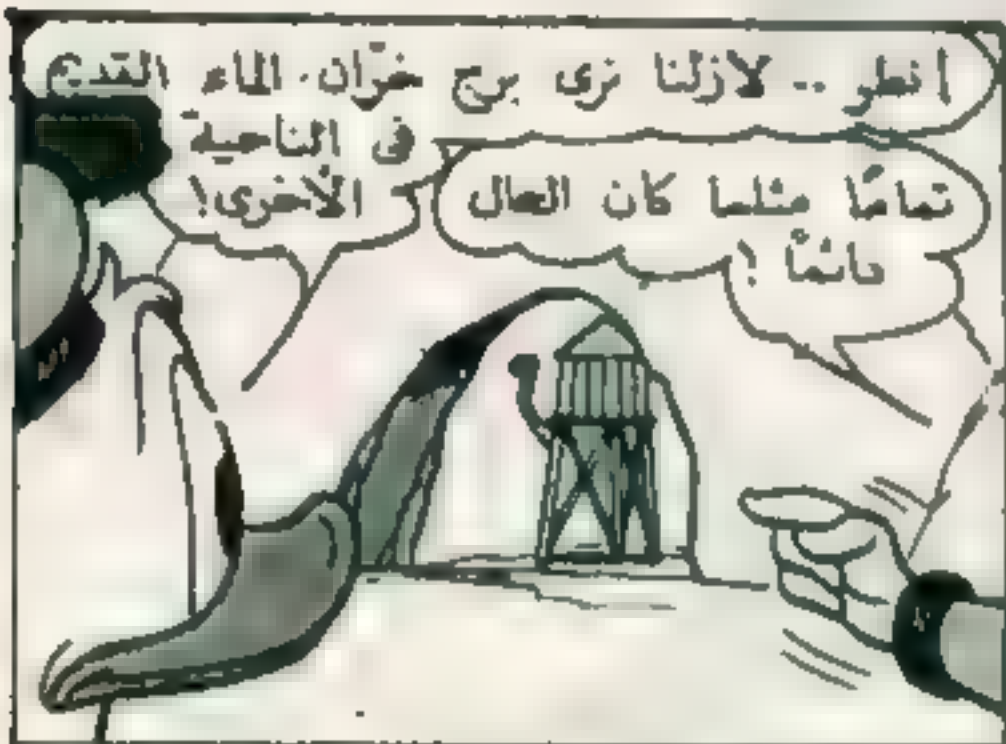 أنظر .. لازلنا نرى برج خزّان الماء القديم
فى الناحية
الأخرى!
تمامًا مثلما كان الحال
دائمًا !